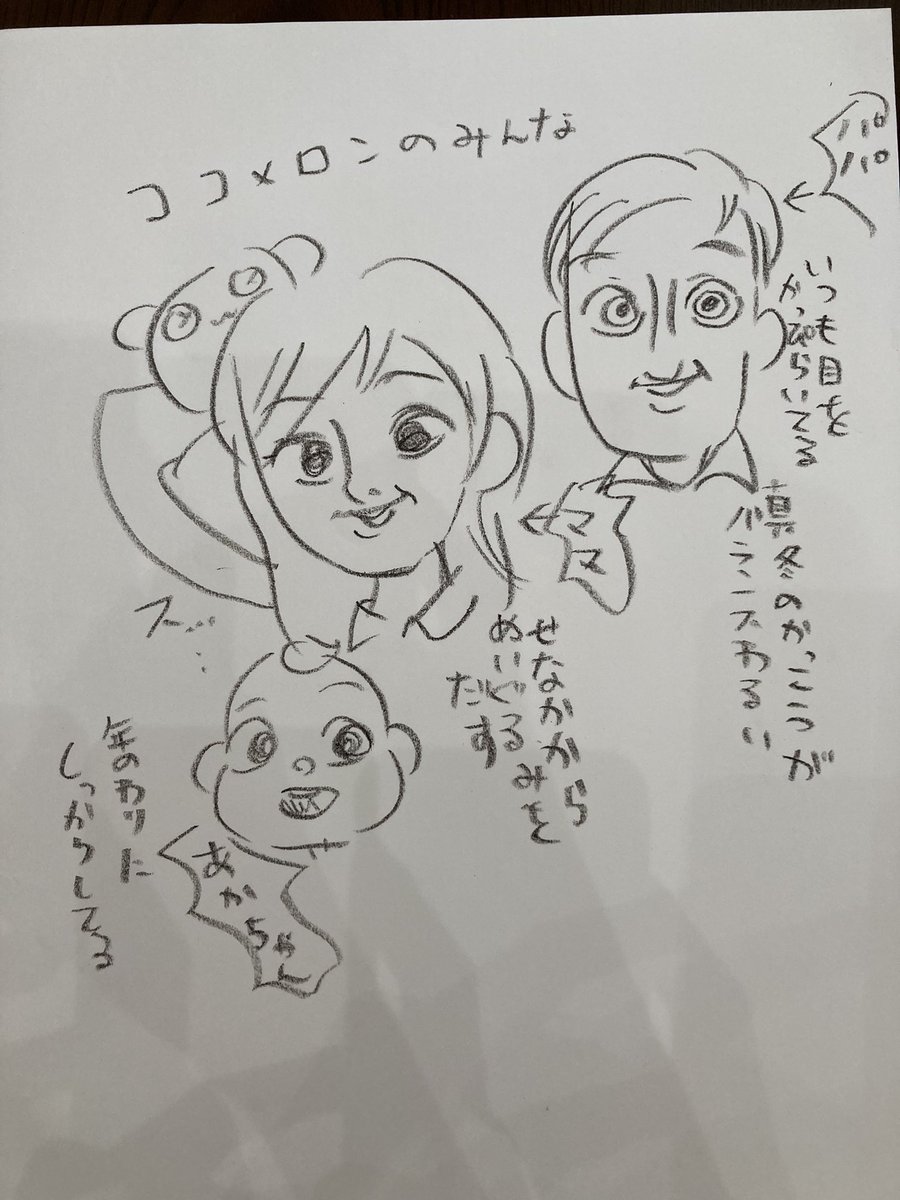 ココメロンのみんな
パパ
いつも目を
かっぴらいてる
真冬のかっこうが
バランスわるい
ママ
せなかから
ぬいぐるみを
だす
スー…
あかちゃん
年のわりに
しっかりしてる